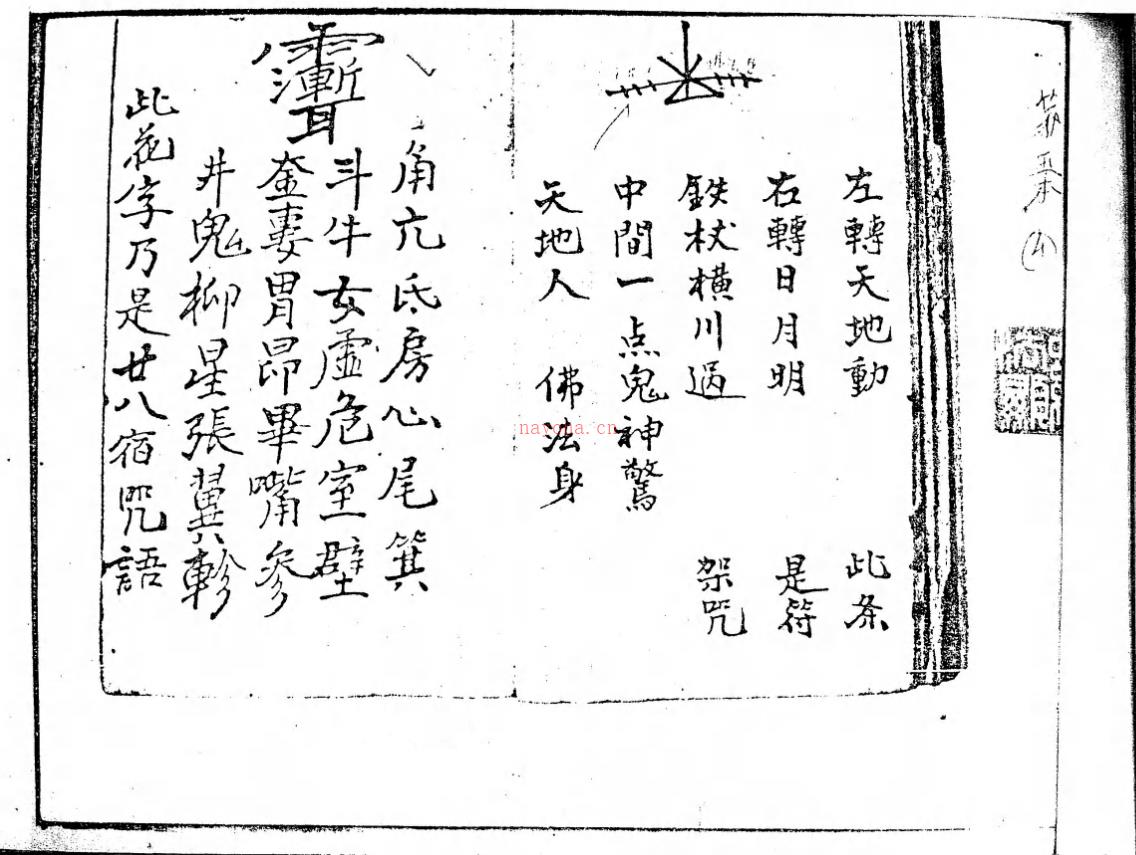 左轉天地動 此条
右轉日月明 是符
鉄杖橫川過 架咒
中間一点鬼神驚
天地人 佛法身
角亢氐房心尾箕
斗牛女虛危室壁
奎婁胃昴畢嘴參
井鬼柳星張翼軫
此花字乃是廿八宿咒語
nayona.cn